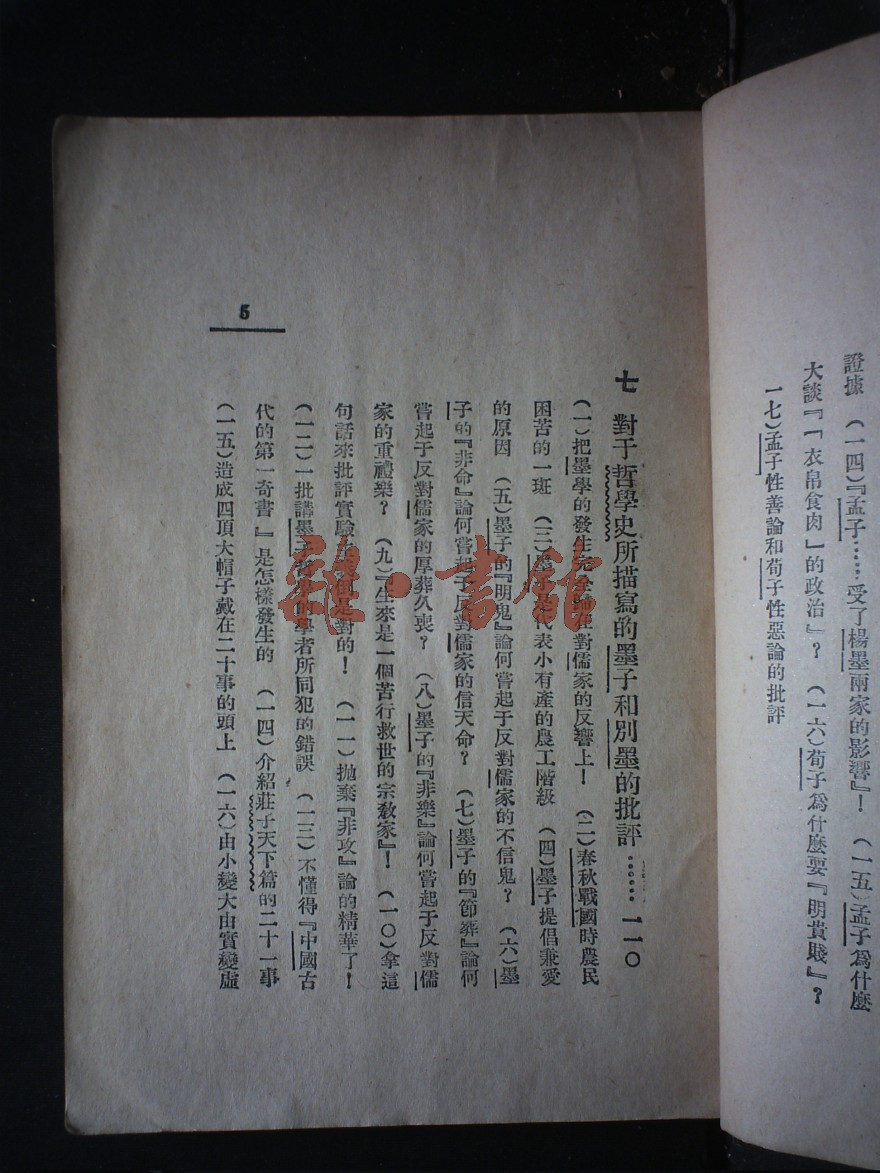 證據　（一四）『孟子……受了楊墨兩家的影響』！　（一五）孟子爲什麼
大談『「衣帛食肉」的政治』？　（一六）荀子爲什麼要『明貴賤』？　（
一七）孟子性善論和荀子性惡論的批評
七　對于哲學史所描寫的墨子和別墨的批評……一一〇
（一）把墨學的發生完全論在對儒家的反響上！　（二）春秋戰國時農民
困苦的一斑　（三）墨子是代表小有產的農工階級　（四）墨子提倡兼愛
的原因　（五）墨子的『明鬼』論何嘗起于反對儒家的不信鬼？　（六）墨
子的『非命』論何嘗起于反對儒家的信天命？　（七）墨子的『節葬』論何
嘗起于反對儒家的厚葬久喪？　（八）墨子的『非樂』論何嘗起于反對儒
家的重禮樂？　（九）『生來是一個苦行救世的宗教家』！　（一〇）拿這
句話來批評實驗倒是對的！　（一一）拋棄『非攻』論的精華了！
（一二）一批講墨子哲學的學者所同犯的錯誤　（一三）不懂得『中國古
代的第一奇書』是怎樣發生的　（一四）介紹莊子天下篇的二十一事
（一五）造成四頂大帽子戴在二十事的頭上　（一六）由小變大由實變虛
5